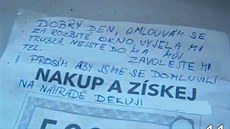 DOBRÝ DEN, OMLOUVÁM SE
ZA ROZBITÉ OKNO, VYJELA MI
TRUBKA. NEJSTE DOMA MŮJ
TEL. ZAVOLEJTE MI
I PROSÍM ABYJSME SE DOMLUVILI
NA NÁHRADĚ DĚKUJI
NAKUP A ZÍSKEJ